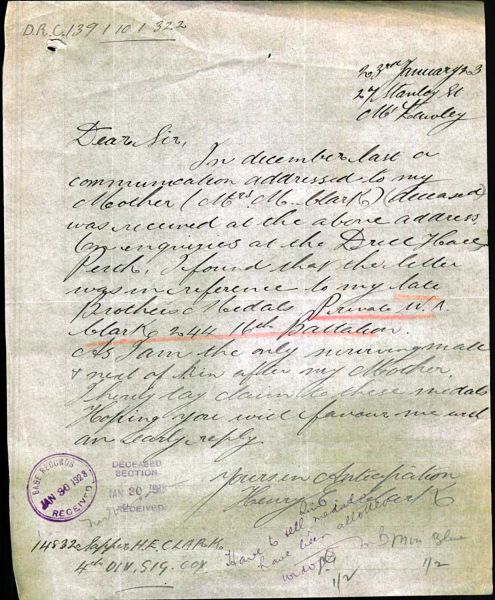 D.R.C. 139/10/322
23rd January 23
27 Stanley St
Mt Lawley
Dear Sir,
In december last a
communication addressed to my
Mother (Mrs. M. Clark) (deceased)
was received at the above address.
On enquiries at the Drill Hall
Perth, I found that the letter
was in reference to my late
Brothers Medals, Private W. A.
Clark 244 16th Battalion.
As I am the only surviving male
& next of kin after my Mother
I hereby lay claim to these medals
Hoping you will favour me with
an early reply.
Yours in Anticipation
Henry E. Clark
BASE RECORDS
JAN 30 1923
RECEIVED
DECEASED
SECTION
JAN 30 1923
RECEIVED
14832 Sapper H.E. CLARK
4th DIV. SIG. COY
Have to medals
have been allotted
1/2
1/2